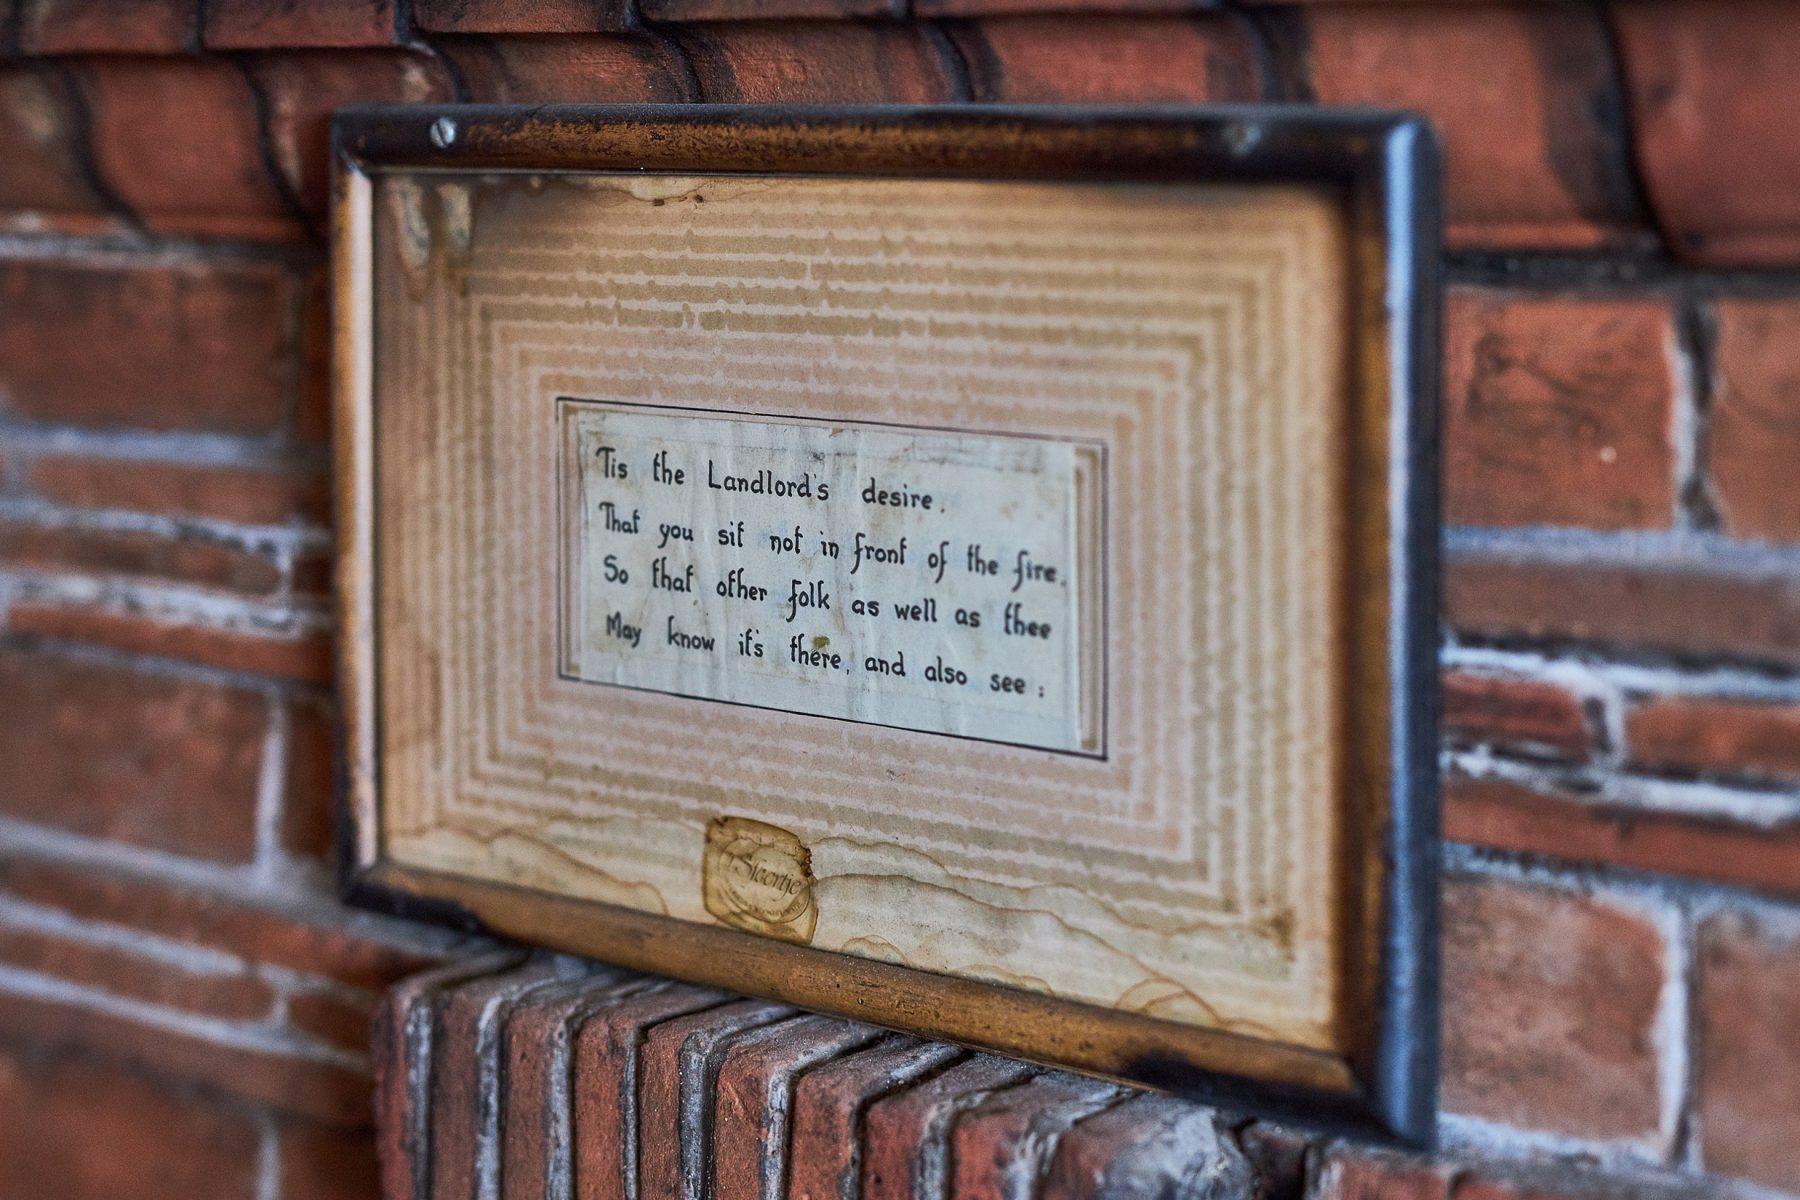 Tis the Landlord's desire.
That you sit not in front of the fire.
So that other folk as well as thee
May know it's there, and also see :